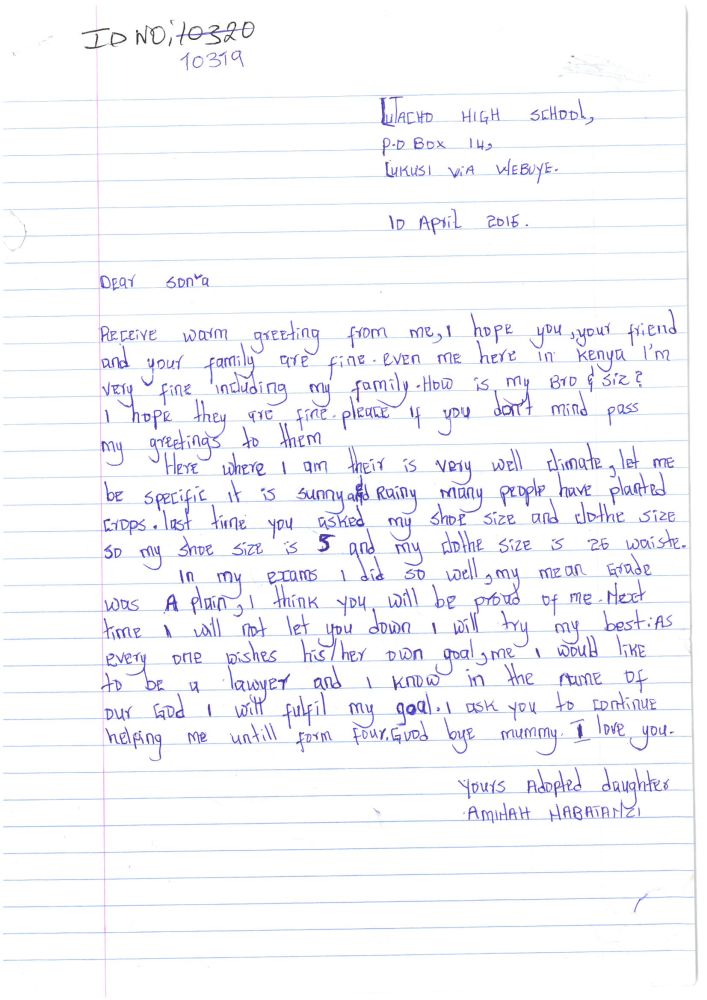 ID NO; 10320
10319
LUTACHO HIGH SCHOOL,
P.O BOX 14,
LUKUSI VIA WEBUYE.
10 April 2015.
Dear Sonia
Receive warm greeting from me, I hope you, your friend
and your family are fine. Even me here in Kenya I'm
very fine including my family. How is my Bro & Siz?
I hope they are fine. please if you don't mind pass
my greetings to them
Here where I am their is very well climate, let me
be specific it is sunny and Rainy many people have planted
crops. last time you asked my shoe size and clothe size
so my shoe size is 5 and my clothe size is 26 waiste.
In my exams I did so well, my mean Grade
was A plain, I think you will be proud of me. Next
time I will not let you down I will try my best. As
every one wishes his/her own goal, me I would like
to be a lawyer and I know in the name of
our God I will fulfil my goal. I ask you to continue
helping me untill form four. Good bye mummy. I love you.
Yours Adopted daughter
AMINAH NABATANZI